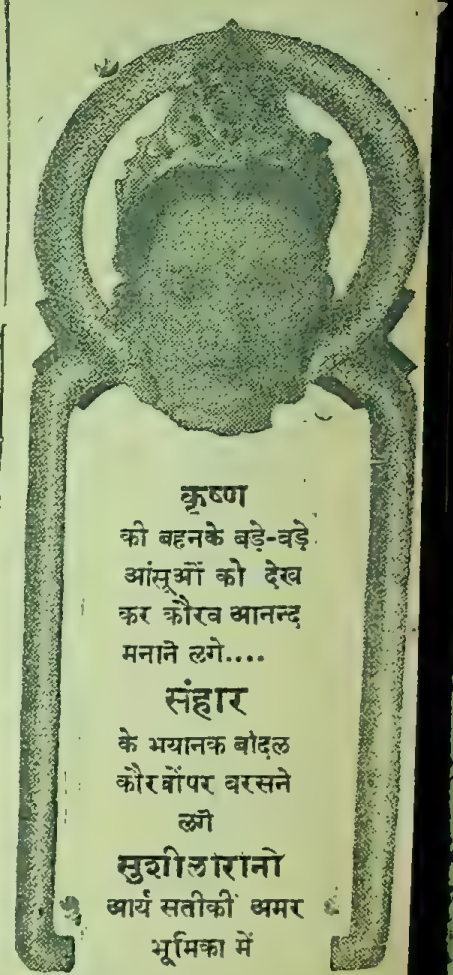 कृष्ण
की बहनके बड़े-बड़े
आंसूओं को देख
कर कौरव आनन्द
मनाने लगे....
संहार
के भयानक बादल
कौरवोंपर बरसने
लगे
सुशीलारानी
आर्य सतीकी अमर
भूमिका में